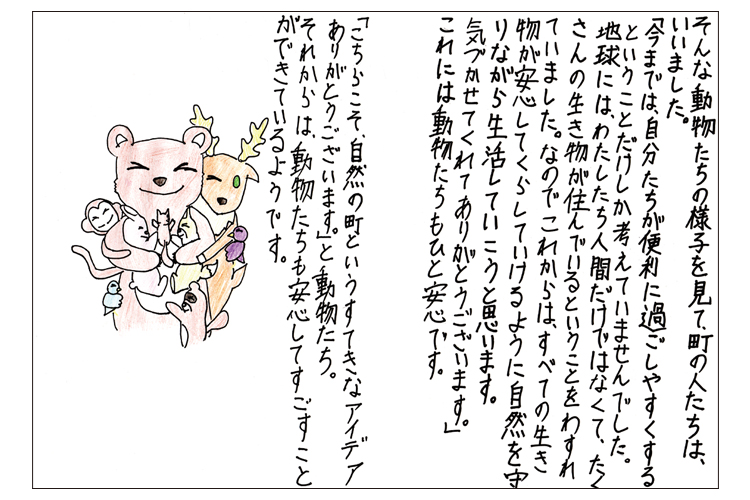 そんな動物たちの様子を見て、町の人たちは、
いいました。
「今までは、自分たちが便利に過ごしやすくする
ということだけしか考えていませんでした。
地球には、わたしたち人間だけではなくて、たく
さんの生き物が住んでいるということをわすれ
ていました。なのでこれからは、すべての生き
物が安心してくらしていけるように自然を守
りながら生活していこうと思います。
気づかせてくれてありがとうございます。」
これには動物たちもひと安心です。
「こちらこそ、自然の町というすてきなアイデア
ありがとうございます。」と動物たち。
それからは、動物たちも安心してすごすこと
ができているようです。